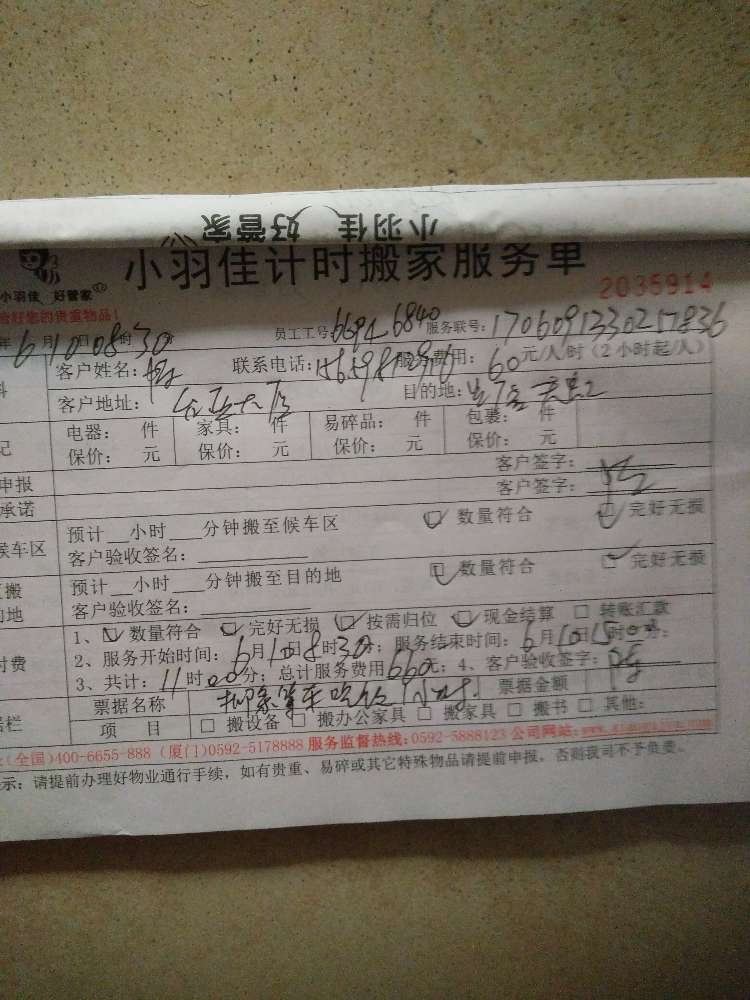 小羽佳 好管家
小羽佳计时搬家服务单
小羽佳 好管家
2035914
好您的贵重物品！
年6月10日08时30分 员工工号: 6694 6840 服务联号: 1706091330217836
客户姓名: 联系电话: 服务费用: 60元/人/时（2小时起/人）
客户地址: 目的地:
电器： 件 家具： 件 易碎品： 件 包裹： 件
保价： 元 保价： 元 保价： 元 保价： 元
申报 客户签字：
承诺 客户签字：
候车区 预计__小时__分钟搬至候车区 数量符合 完好无损
客户验收签名：
搬 预计__小时__分钟搬至目的地 数量符合 完好无损
的地 客户验收签名：
1、数量符合 完好无损 按需归位 现金结算 转账汇款
付费 2、服务开始时间：6月10日8时30分；服务结束时间：6月10日15时0分；
3、共计：11时00分；总计服务费用660元；4、客户验收签字：
票据名称 票据金额
栏 项 目 搬设备 搬办公家具 搬家具 搬书 其他：
(全国)400-6655-888 (厦门)0592-5178888 服务监督热线:0592-5888123 公司网站:
示：请提前办理好物业通行手续，如有贵重、易碎或其它特殊物品请提前申报，否则我司不予负责。